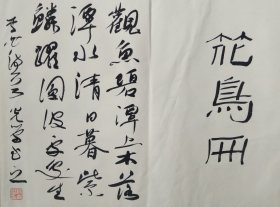 花鳥冊
觀魚碧潭上木落
潭水清日暮紫
鱗躍圓波處處生
李白詩